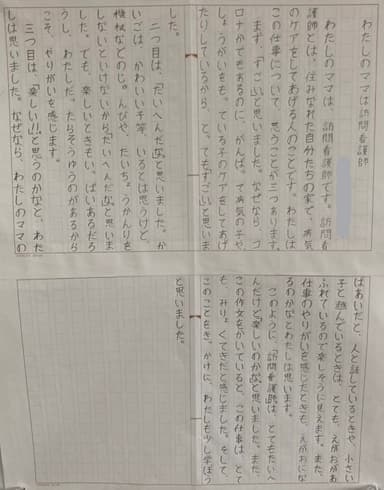 わたしのママは訪問看護師
わたしのママは、訪問看護師です。訪問看
護師とは、住みなれた自分たちの家で、病気
のケアをしてあげる人のことです。わたしは
この仕事について、思うことが三つあります。
まず、「すごい」と思いました。なぜなら、コ
ロナかできあるのに、がんばって病気の子や、
しょうがいをもっている子のケアをしてあげ
たりしているから、とってもすごいと思いま
した。
二つ目は、「たいへんだな」と思いました。か
いごは、かわいい子等、いるとは思うけど、
しないといけないからたいへんだな」と思いま
した。でも、楽しいときもいっぱいあるだろ
うし、わたしだったらそうゆうのがあるから
こそ、やりがいを感じます。
三つ目は、「楽しい!!」と思うのかなと、わた
しは思いました。なぜなら、わたしのママの
ばあいだと、人と話しているときや、小さい
子と遊んでいるときは、とても、えがおがあ
ふれているので楽しそうに見えます。また、
仕事のやりがいを感じたときも、えがおにな
るのかなとわたしは思います。
このように、「訪問看護師」は、とてもたいへ
んだけど「楽しいのかな」と思いました。また、
この作文をかいていると、この仕事は、とて
も、みりょくてきだと感じました。そして、
このことをきっかけに、わたしも少し学ぼう
と思いました。